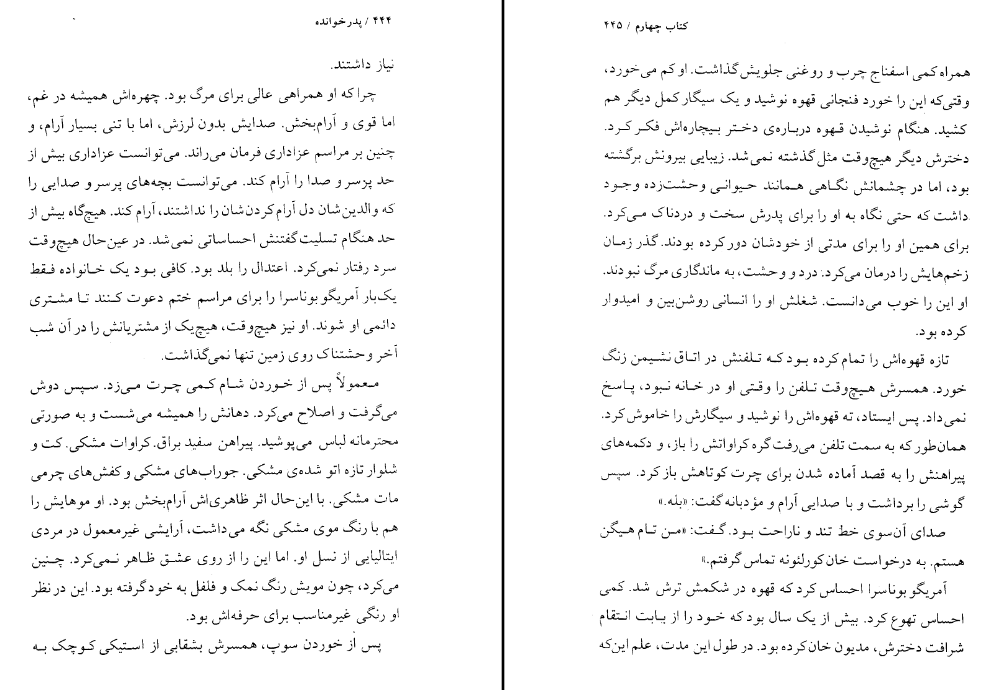 ۴۴۴ / پدرخوانده
نیاز داشتند.
چرا که او همراهی عالی برای مرگ بود. چهره‌اش همیشه در غم،
اما قوی و آرام‌بخش. صدایش بدون لرزش، اما با تنی بسیار آرام، و
چنین بر مراسم عزاداری فرمان می‌راند. می‌توانست عزاداری بیش از
حد پرسر و صدا را آرام کند. می‌توانست بچه‌های پرسر و صدایی را
که والدین‌شان دل آرام کردن‌شان را نداشتند، آرام کند. هیچ‌گاه بیش از
حد هنگام تسلیت گفتنش احساساتی نمی‌شد. در عین‌حال هیچ‌وقت
سرد رفتار نمی‌کرد. اعتدال را بلد بود. کافی بود یک خانواده فقط
یک‌بار آمریگو بوناسرا را برای مراسم ختم دعوت کنند تا مشتری
دائمی او شوند. او نیز هیچ‌وقت، هیچ‌یک از مشتریانش را در آن شب
آخر وحشتناک روی زمین تنها نمی‌گذاشت.
معمولاً پس از خوردن شام کمی چرت می‌زد. سپس دوش
می‌گرفت و اصلاح می‌کرد. دهانش را همیشه می‌شست و به صورتی
محترمانه لباس می‌پوشید. پیراهن سفید براق. کراوات مشکی. کت و
شلوار تازه اتو شده‌ی مشکی. جوراب‌های مشکی و کفش‌های چرمی
مات مشکی. با این‌حال اثر ظاهری‌اش آرام‌بخش بود. او موهایش را
هم با رنگ موی مشکی نگه می‌داشت، آرایشی غیرمعمول در مردی
ایتالیایی از نسل او. اما این را از روی عشق ظاهر نمی‌کرد. چنین
می‌کرد، چون مویش رنگ نمک و فلفل به خود گرفته بود. این در نظر
او رنگی غیرمناسب برای حرفه‌اش بود.
پس از خوردن سوپ، همسرش بشقابی از استیکی کوچک به
کتاب چهارم / ۴۴۵
همراه کمی اسفناج چرب و روغنی جلویش گذاشت. او کم می‌خورد،
وقتی‌که این را خورد فنجانی قهوه نوشید و یک سیگار کمل دیگر هم
کشید. هنگام نوشیدن قهوه درباره‌ی دختر بیچاره‌اش فکر کرد.
دخترش دیگر هیچ‌وقت مثل گذشته نمی‌شد. زیبایی بیرونش برگشته
بود، اما در چشمانش نگاهی همانند حیوانی وحشت‌زده وجود
داشت که حتی نگاه به او را برای پدرش سخت و دردناک می‌کرد.
برای همین او را برای مدتی از خودشان دور کرده بودند. گذر زمان
زخم‌هایش را درمان می‌کرد: درد و وحشت، به ماندگاری مرگ نبودند.
او این را خوب می‌دانست. شغلش او را انسانی روشن‌بین و امیدوار
کرده بود.
تازه قهوه‌اش را تمام کرده بود که تلفنش در اتاق نشیمن زنگ
خورد. همسرش هیچ‌وقت تلفن را وقتی او در خانه نبود، پاسخ
نمی‌داد. پس ایستاد، ته قهوه‌اش را نوشید و سیگارش را خاموش کرد.
همان‌طور که به سمت تلفن می‌رفت گره کراواتش را باز، و دکمه‌های
پیراهنش را به قصد آماده شدن برای چرت کوتاهش باز کرد. سپس
گوشی را برداشت و با صدایی آرام و مؤدبانه گفت: «بله.»
صدای آن‌سوی خط تند و ناراحت بود. گفت: «من تام هیگن
هستم. به درخواست خان کورلئونه تماس گرفتم.»
آمریگو بوناسرا احساس کرد که قهوه در شکمش ترش شد. کمی
احساس تهوع کرد. بیش از یک سال بود که خود را از بابت انتقام
شرافت دخترش، مدیون خان کرده بود. در طول این مدت، علم این‌که